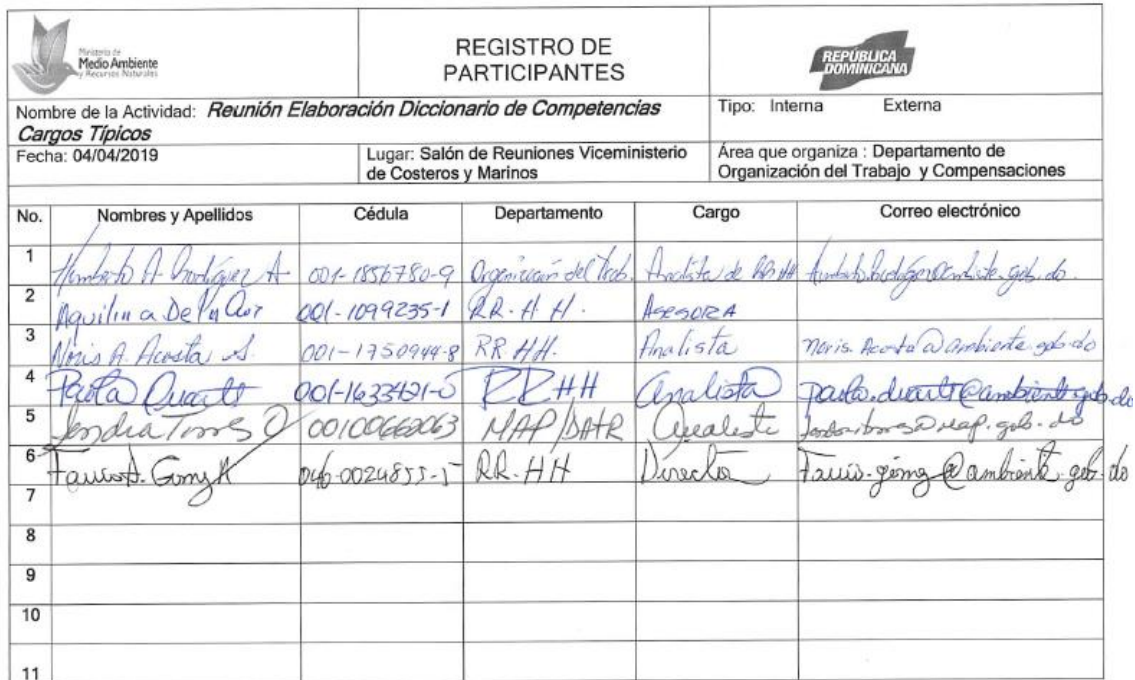 Ministerio de
Medio Ambiente
y Recursos Naturales
REGISTRO DE
PARTICIPANTES
REPÚBLICA
DOMINICANA
Nombre de la Actividad: Reunión Elaboración Diccionario de Competencias
Cargos Típicos
Tipo: Interna Externa
Fecha: 04/04/2019
Lugar: Salón de Reuniones Viceministerio
de Costeros y Marinos
Área que organiza : Departamento de
Organización del Trabajo y Compensaciones
No. Nombres y Apellidos Cédula Departamento Cargo Correo electrónico
1 Humberto A. Rodríguez A 001-1856780-9 Organización del Trab. Analista de RRHH
2 Aquilina De La Cruz 001-1099235-1 RR.H H. ASESORA
3 Noris A. Acosta S. 001-1750944-8 RR.HH. Analista noris.Acosta@ambiente.gob.do
4 Paola Duarte RRHH Analista paola.duarte@ambiente.gob.do
5 Torres MAP/DATR Analista
6 RR.HH Director
7
8
9
10
11